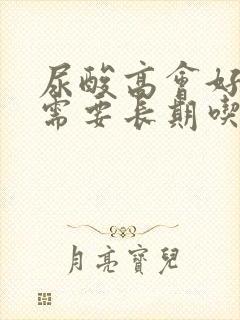 尿酸高會好
需要長期喫
月亮寶兒